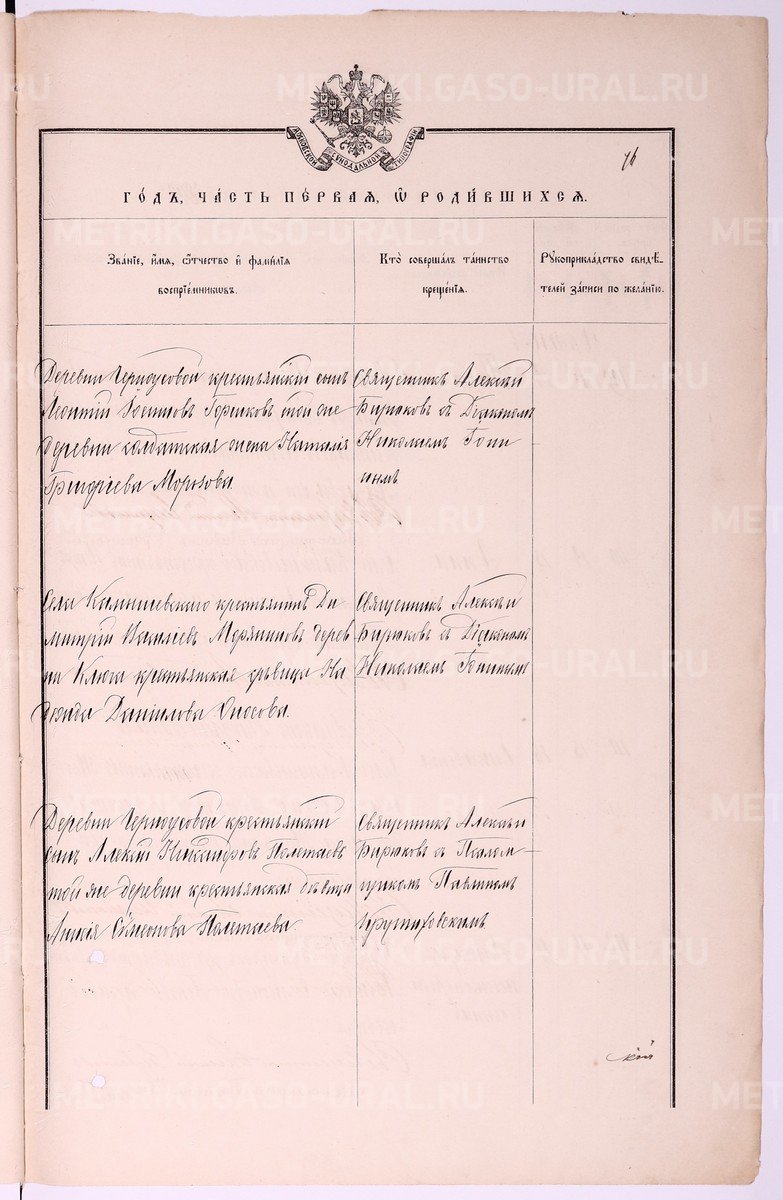 МОСКОВСКОЙ СѴНОДАЛЬНОЙ ТИПОГРАФІИ
ГОДЪ, ЧАСТЬ ПЕРВАЯ, Ѡ РОДИВШИХСЯ.
Званіе, имя, отчество и фамилія
воспріемниковъ.
Кто совершалъ таинство
крещенія.
Рукоприкладство свидѣ-
телей записи по желанію.
Деревни Черноусовой крестьянскій сынъ
Леонтій Горшковъ той же
деревни солдатская жена Наталія
Григоріева Морозова.
Священникъ Алексѣй
Бирюковъ съ Діакономъ
Николаемъ Топи
нымъ
Села Камышевскаго крестьянинъ Ди
митрій Василіевъ дерев
ни Ключи крестьянская дѣвица На
дежда Даніилова
Священникъ Алексѣй
Бирюковъ съ Діакономъ
Николаемъ Топинымъ
Деревни Черноусовой крестьянскій
сынъ Алексій Никандровъ Полетаевъ
той же деревни крестьянская дѣвица
Симеонова Полетаева.
Священникъ Алексѣй
Бирюковъ съ Псалом-
щикомъ Павлиномъ
Крутиховскимъ
METRIKI.GASO-URAL.RU